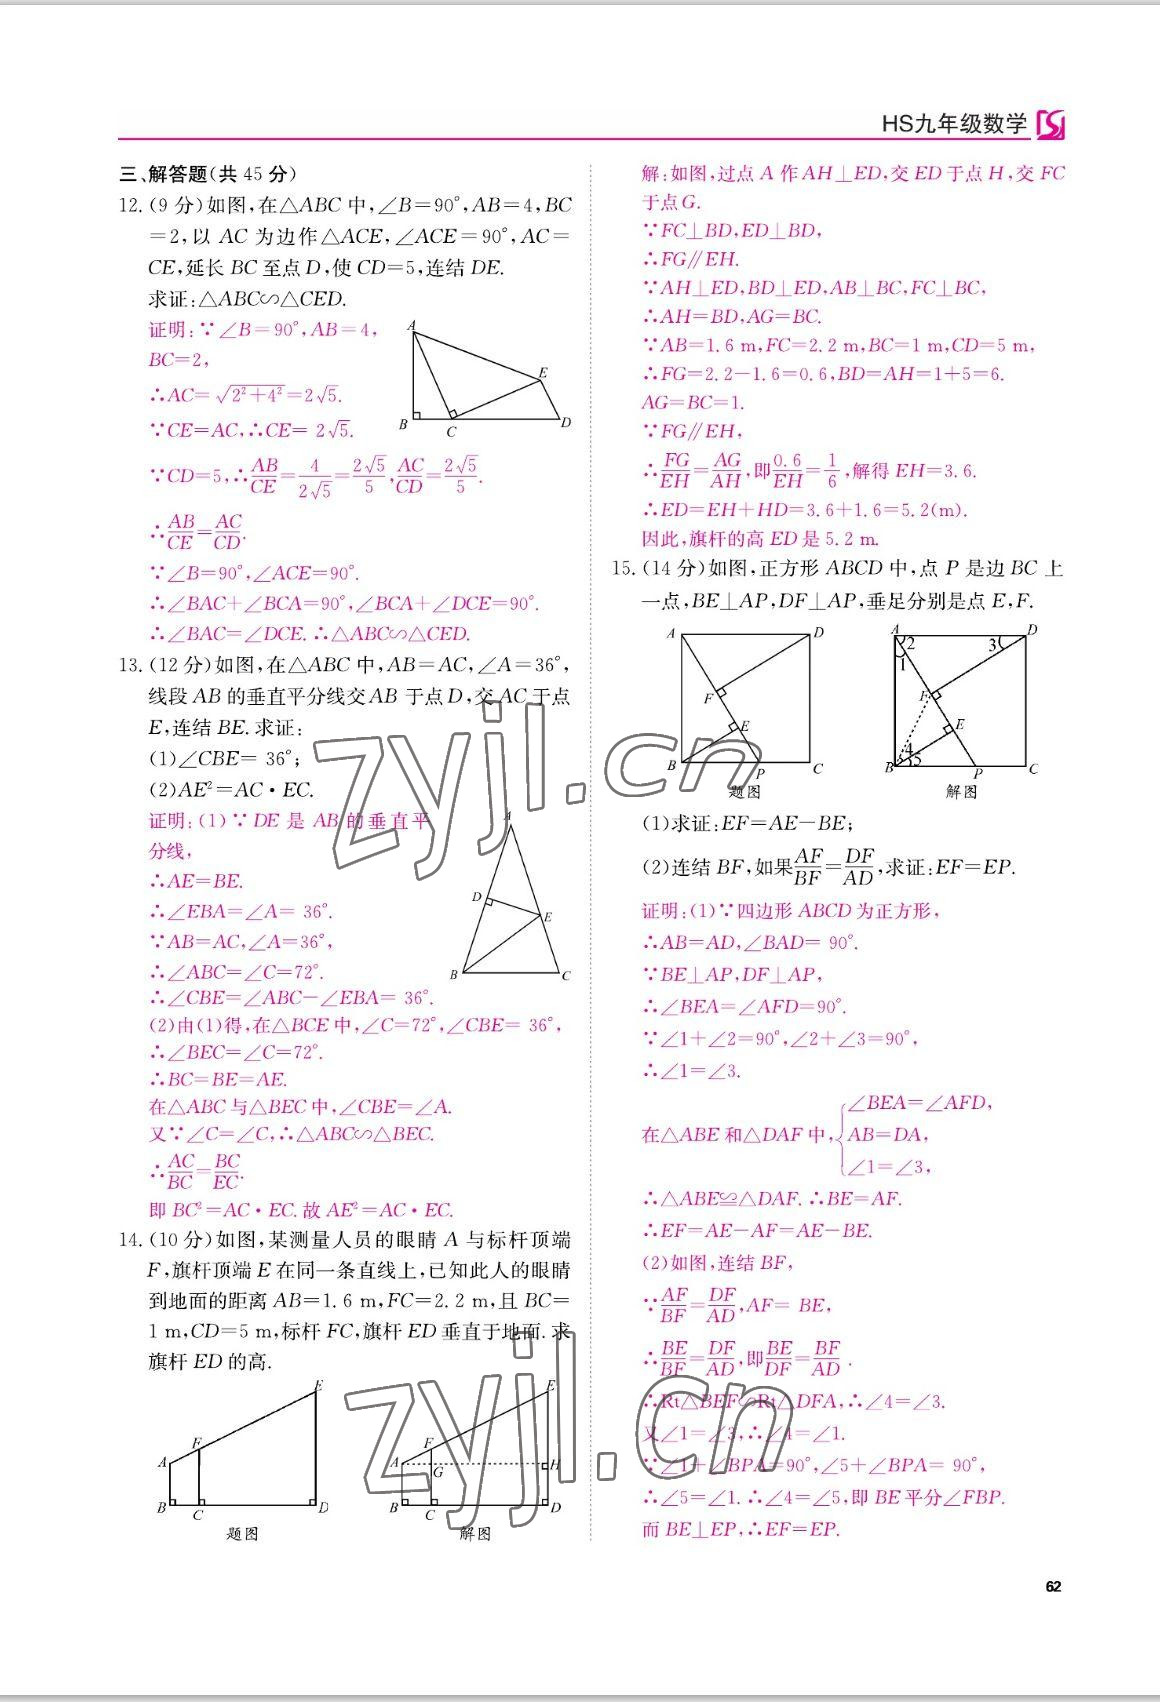 HS九年级数学
三、解答题(共 45 分)
12.(9 分)如图,在△ABC 中,∠B=90°,AB=4,BC
=2,以 AC 为边作△ACE,∠ACE=90°,AC=
CE,延长 BC 至点 D,使 CD=5,连结 DE.
求证:△ABC∽△CED.
证明:∵∠B=90°,AB=4,
BC=2,
∴AC=√(2²+4²)=2√5.
∵CE=AC,∴CE= 2√5.
∵CD=5,∴AB/CE=4/(2√5)=2√5/5,AC/CD=2√5/5.
∴AB/CE=AC/CD.
∵∠B=90°,∠ACE=90°.
∴∠BAC+∠BCA=90°,∠BCA+∠DCE=90°.
∴∠BAC=∠DCE.∴△ABC∽△CED.
A
E
B
C
D
13.(12 分)如图,在△ABC 中,AB=AC,∠A=36°,
线段 AB 的垂直平分线交 AB 于点 D,交 AC 于点
E,连结 BE.求证:
(1)∠CBE= 36°;
(2)AE²=AC·EC.
证明:(1)∵DE 是 AB 的垂直平
分线,
∴AE=BE.
∴∠EBA=∠A= 36°.
∵AB=AC,∠A=36°,
∴∠ABC=∠C=72°.
∴∠CBE=∠ABC-∠EBA= 36°.
(2)由(1)得,在△BCE 中,∠C=72°,∠CBE= 36°,
∴∠BEC=∠C=72°.
∴BC=BE=AE.
在△ABC 与△BEC 中,∠CBE=∠A.
又∵∠C=∠C,∴△ABC∽△BEC.
∴AC/BC=BC/EC.
即 BC²=AC·EC.故 AE²=AC·EC.
A
D
E
B
C
14.(10 分)如图,某测量人员的眼睛 A 与标杆顶端
F,旗杆顶端 E 在同一条直线上,已知此人的眼睛
到地面的距离 AB=1.6 m,FC=2.2 m,且 BC=
1 m,CD=5 m,标杆 FC,旗杆 ED 垂直于地面.求
旗杆 ED 的高.
E
F
A
B
C
D
题图
E
F
A
G
H
B
C
D
解图
解:如图,过点 A 作 AH⊥ED,交 ED 于点 H,交 FC
于点 G.
∵FC⊥BD,ED⊥BD,
∴FG∥EH.
∵AH⊥ED,BD⊥ED,AB⊥BC,FC⊥BC,
∴AH=BD,AG=BC.
∵AB=1.6 m,FC=2.2 m,BC=1 m,CD=5 m,
∴FG=2.2-1.6=0.6,BD=AH=1+5=6.
AG=BC=1.
∵FG∥EH,
∴FG/EH=AG/AH,即0.6/EH=1/6,解得 EH=3.6.
∴ED=EH+HD=3.6+1.6=5.2(m).
因此,旗杆的高 ED 是 5.2 m.
15.(14 分)如图,正方形 ABCD 中,点 P 是边 BC 上
一点,BE⊥AP,DF⊥AP,垂足分别是点 E,F.
A
D
F
E
B
P
C
题图
A
D
2
3
1
F
E
4
5
B
P
C
解图
(1)求证:EF=AE-BE;
(2)连结 BF,如果AF/BF=DF/AD,求证:EF=EP.
证明:(1)∵四边形 ABCD 为正方形,
∴AB=AD,∠BAD= 90°.
∵BE⊥AP,DF⊥AP,
∴∠BEA=∠AFD=90°.
∵∠1+∠2=90°,∠2+∠3=90°,
∴∠1=∠3.
∠BEA=∠AFD,
在△ABE 和△DAF 中,{AB=DA,
∠1=∠3,
∴△ABE≌△DAF.∴BE=AF.
∴EF=AE-AF=AE-BE.
(2)如图,连结 BF,
∵AF/BF=DF/AD,AF= BE,
∴BE/BF=DF/AD,即BE/DF=BF/AD.
∴Rt△BEF∽Rt△DFA,∴∠4=∠3.
又∠1=∠3,∴∠4=∠1.
∵∠1+∠BPA=90°,∠5+∠BPA= 90°,
∴∠5=∠1.∴∠4=∠5,即 BE 平分∠FBP.
而 BE⊥EP,∴EF=EP.
zyjl.cn
zyjl.cn
62